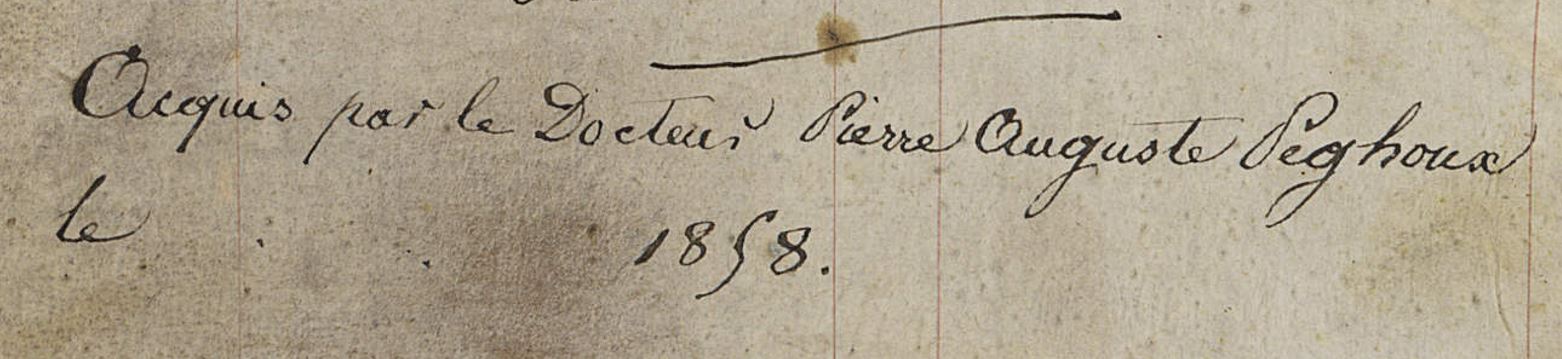 Acquis par le Docteur Pierre Auguste Péghoux
le 1858.